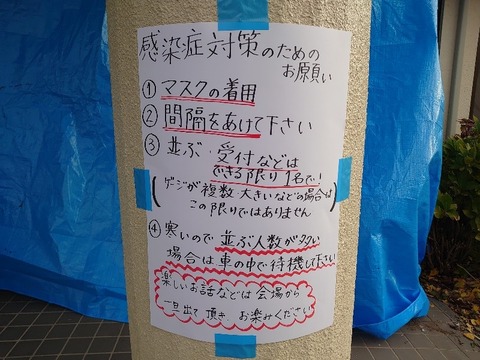 感染症対策のための
お願い
① マスクの着用
② 間隔をあけて下さい
③ 並ぶ・受付などは
できる限り1名で!
(ゲージが複数・大きいなどの場合は
この限りではありません)
④ 寒いので 並ぶ人数が多い
場合は車の中で待機して下さい
楽しいお話などは会場から
一旦出て頂き、お楽みください